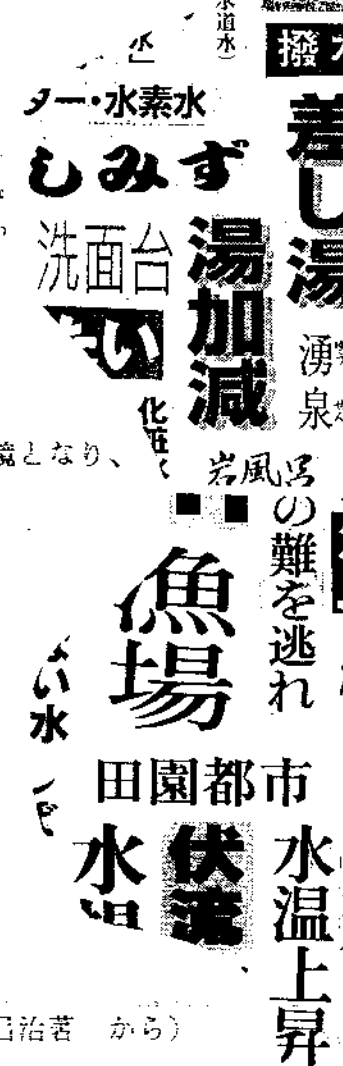 水道水）
水」
撥
ター・水素水
しみず
差し湯
洗面台
湯加減
い
湧泉
化粧水
境となり、
岩風呂
の難を逃れ
漁場
い水
田園都市
水温
伏流
水温上昇
治著　から）